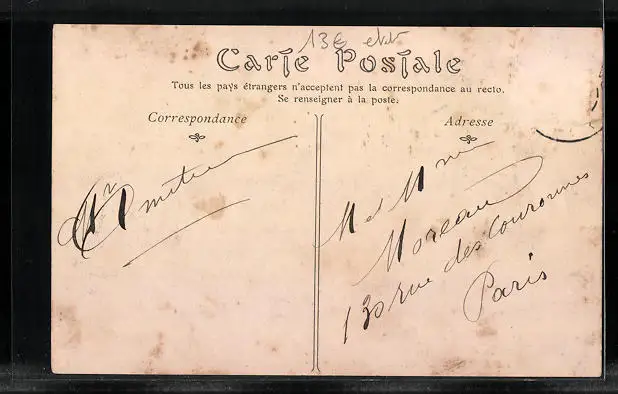 13€
Carte Postale
Tous les pays étrangers n'acceptent pas la correspondance au recto.
Se renseigner à la poste.
Correspondance
Adresse
M et Mme
Moreau
130 rue des Couronnes
Paris